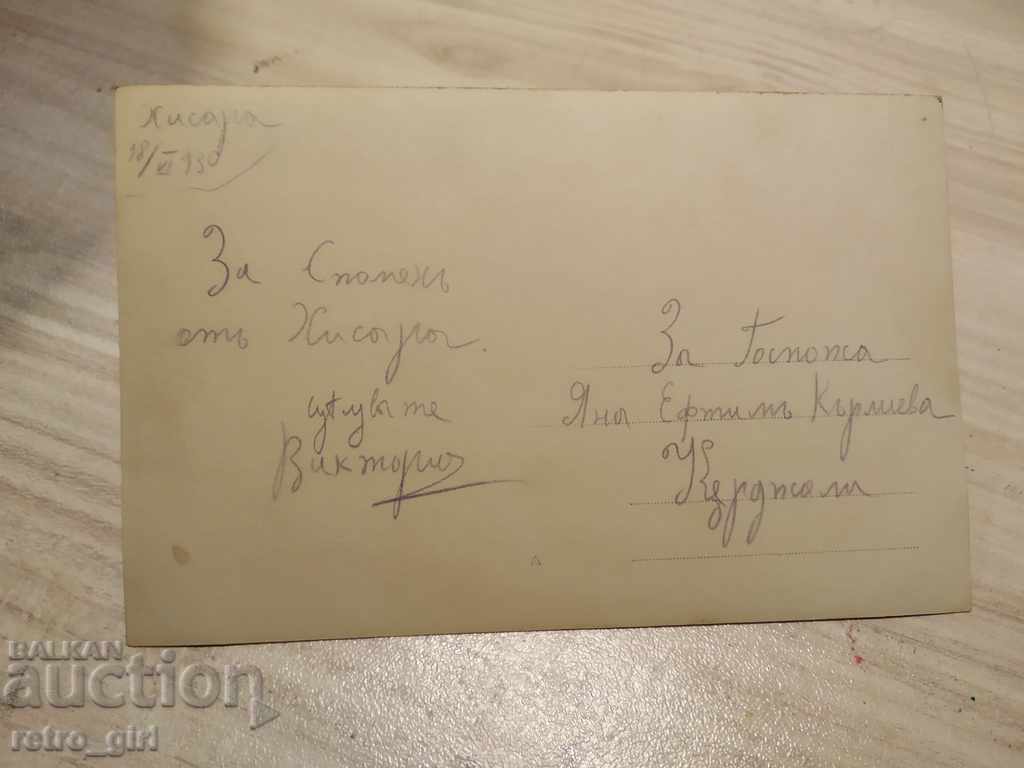 Хисаря
18/XI 930
За Споменъ
отъ Хисаря.
цѣлувъ те
Виктория
За Госпожа
Яна Ефтимъ Кърлиева
Кърджали
BALKAN
auction
retro_girl